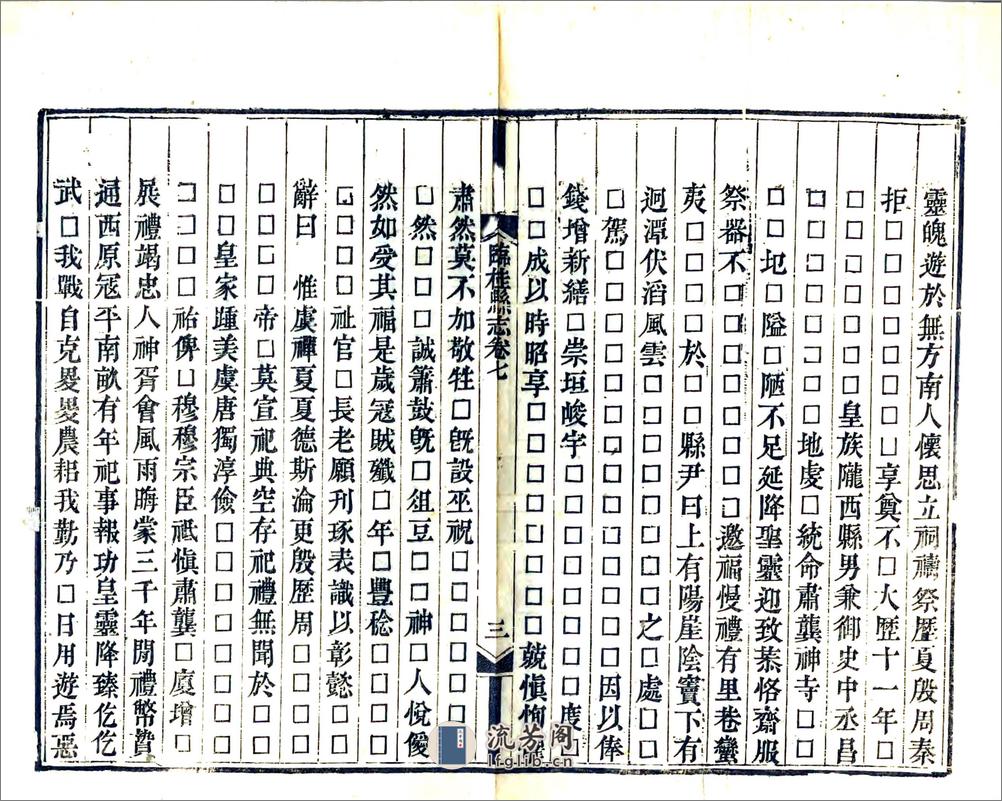 靈魄遊於無方南人懷思立祠禱祭歷夏殷周秦
拒□□□□□享奠不□大歷十一年□
□□□□□皇族隴西縣男兼御史中丞昌
□□□□□□地處□統命肅龔神寺□□
□□圯□隘□陋不足延降聖靈迎致蒸恪齋服
祭器不□□□□□□邀福慢禮有里巷蠻
夷□□□於□□縣尹曰上有陽崖陰竇下有
迥潭伏滔風雲□□□□□□□之□處□□
□駕□□□□□□□□□□□因以俸
錢增新繕□崇垣峻宇□□□□□□□度□
□□成以時昭享□□□□□□兢愼恂
臨桂縣志卷七
三
肅然莫不加敬牲□旣設巫祝□□□□□□
□然□□□誠簫鼓旣□俎豆□□神□人悅優
然如受其福是歲冦賊殲□年□豐稔□□□□
□□□□祉官□長老願刊琢表識以彰懿□□
辭曰　惟虞禪夏夏德斯淪更殷歷周□□□□
□□□帝□莫宣祀典空存祀禮無聞於□□
□□皇家踵美虞唐獨淳儉□□□□□□□
□□□祐俾□穆穆宗臣祗愼肅龔□廈增□
展禮竭忠人神胥會風雨晦蒙三千年閒禮幣贄
通西原冦平南畝有年祀事報功皇靈降臻仡仡
武□我戰自克畟畟農耜我勤乃□日用遊焉惡
流芳阁
lfglib.cn